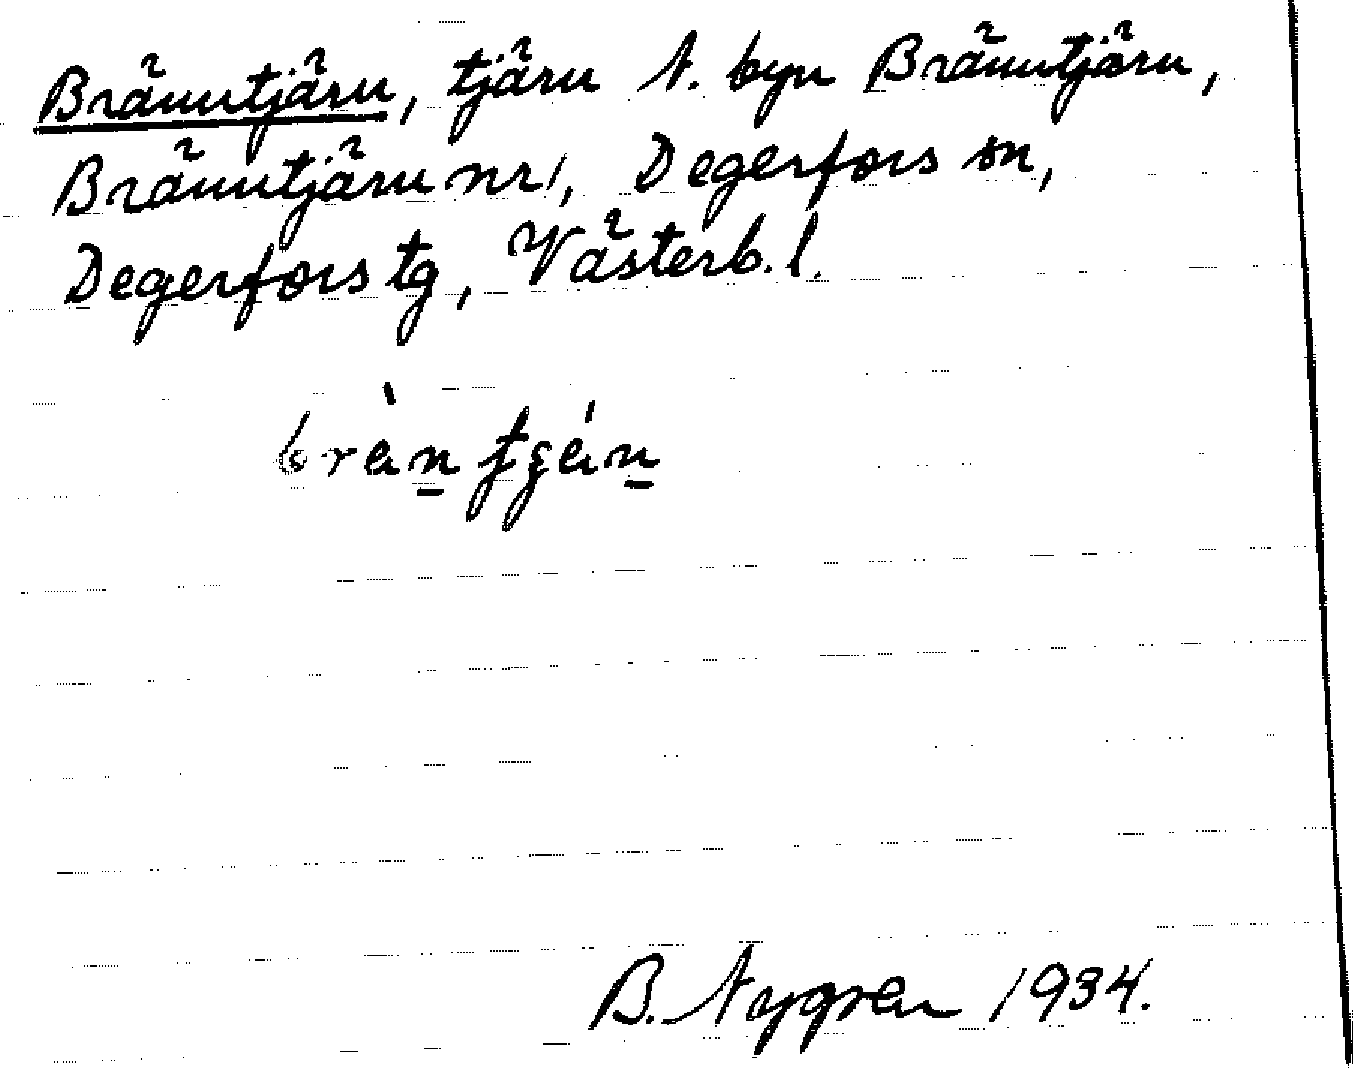 Bränntjärn, tjärn N. byn Bränntjärn,
Bränntjärn nr 1, Degerfors sn,
Degerfors tg, Västerb. l.
B. Nygren 1934.